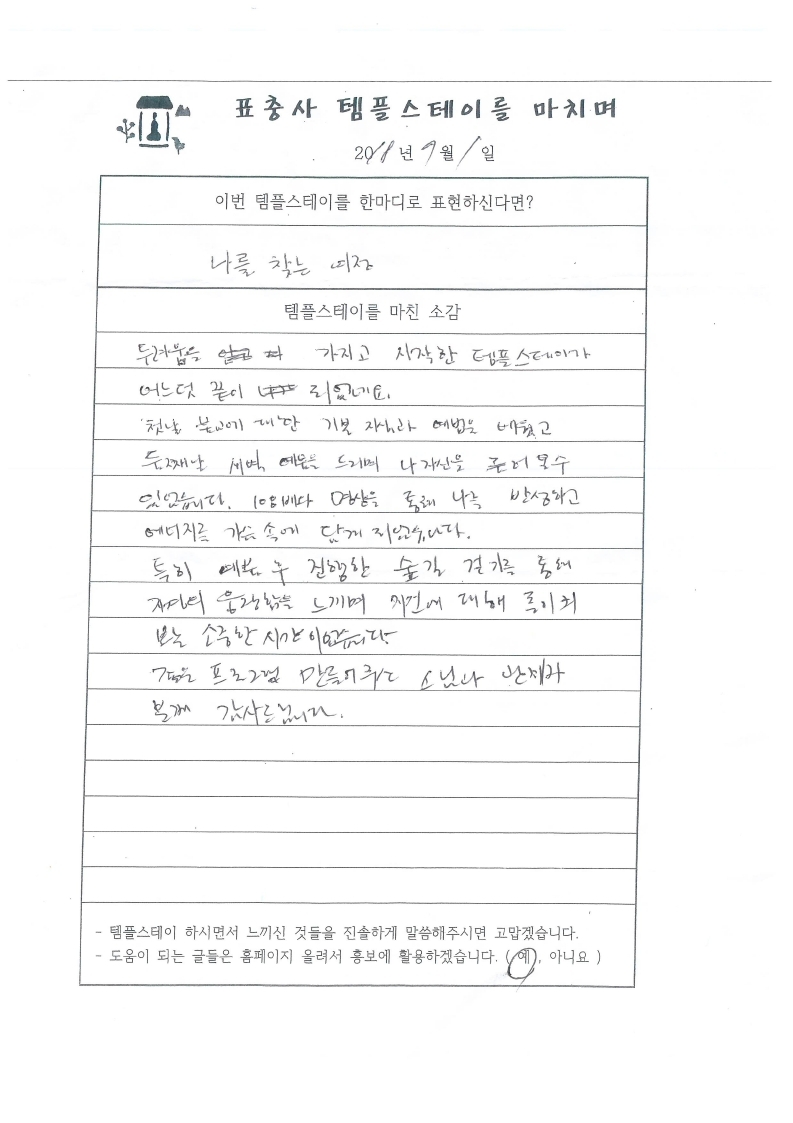 표충사 템플스테이를 마치며
2018년 9월 1일
이번 템플스테이를 한마디로 표현하신다면?
나를 찾는 여정
템플스테이를 마친 소감
두려움을 가지고 시작한 템플스테이가
어느덧 끝이 되었네요.
첫날 불교에 대한 기본 지식과 예법을 배웠고
둘째날 새벽 예불을 드리며 나 자신을 볼수
있었습니다. 108배다 명상을 통해 나를 반성하고
에너지를 가슴 속에 담게 되었습니다.
특히 예불 후 진행한 숲길 걷기를 통해
자연의 웅장함을 느끼며 자연에 대해
보는 소중한 시간이었습니다
좋은 프로그램 만들어주신 스님과 관계자
분께 감사드립니다.
- 템플스테이 하시면서 느끼신 것들을 진솔하게 말씀해주시면 고맙겠습니다.
- 도움이 되는 글들은 홈페이지 올려서 홍보에 활용하겠습니다. ( 예, 아니요 )